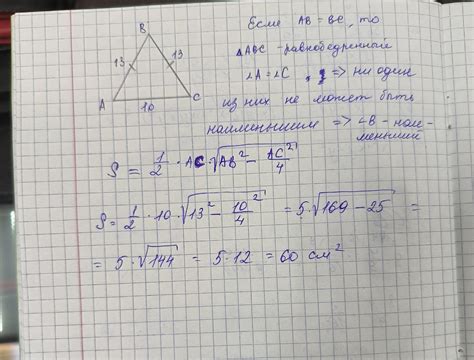 B
13 13
A C
10
Если AB = BC, то
△ABC - равнобедренный
∠A = ∠C, => ни один
из них не может быть
наименьшим => ∠B - наи-
меньший
S = 1/2 · AC · √(AB² - AC²/4)
S = 1/2 · 10 · √(13² - 10²/4) = 5 · √(169 - 25) =
= 5 · √144 = 5 · 12 = 60 см²